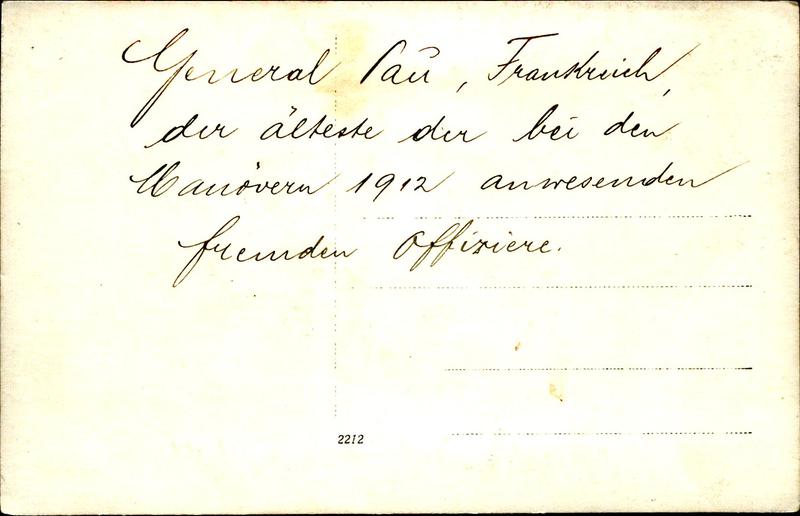 General Pau, Frankreich,
der älteste der bei den
Manövern 1912 anwesenden
fremden Offiziere.
2212